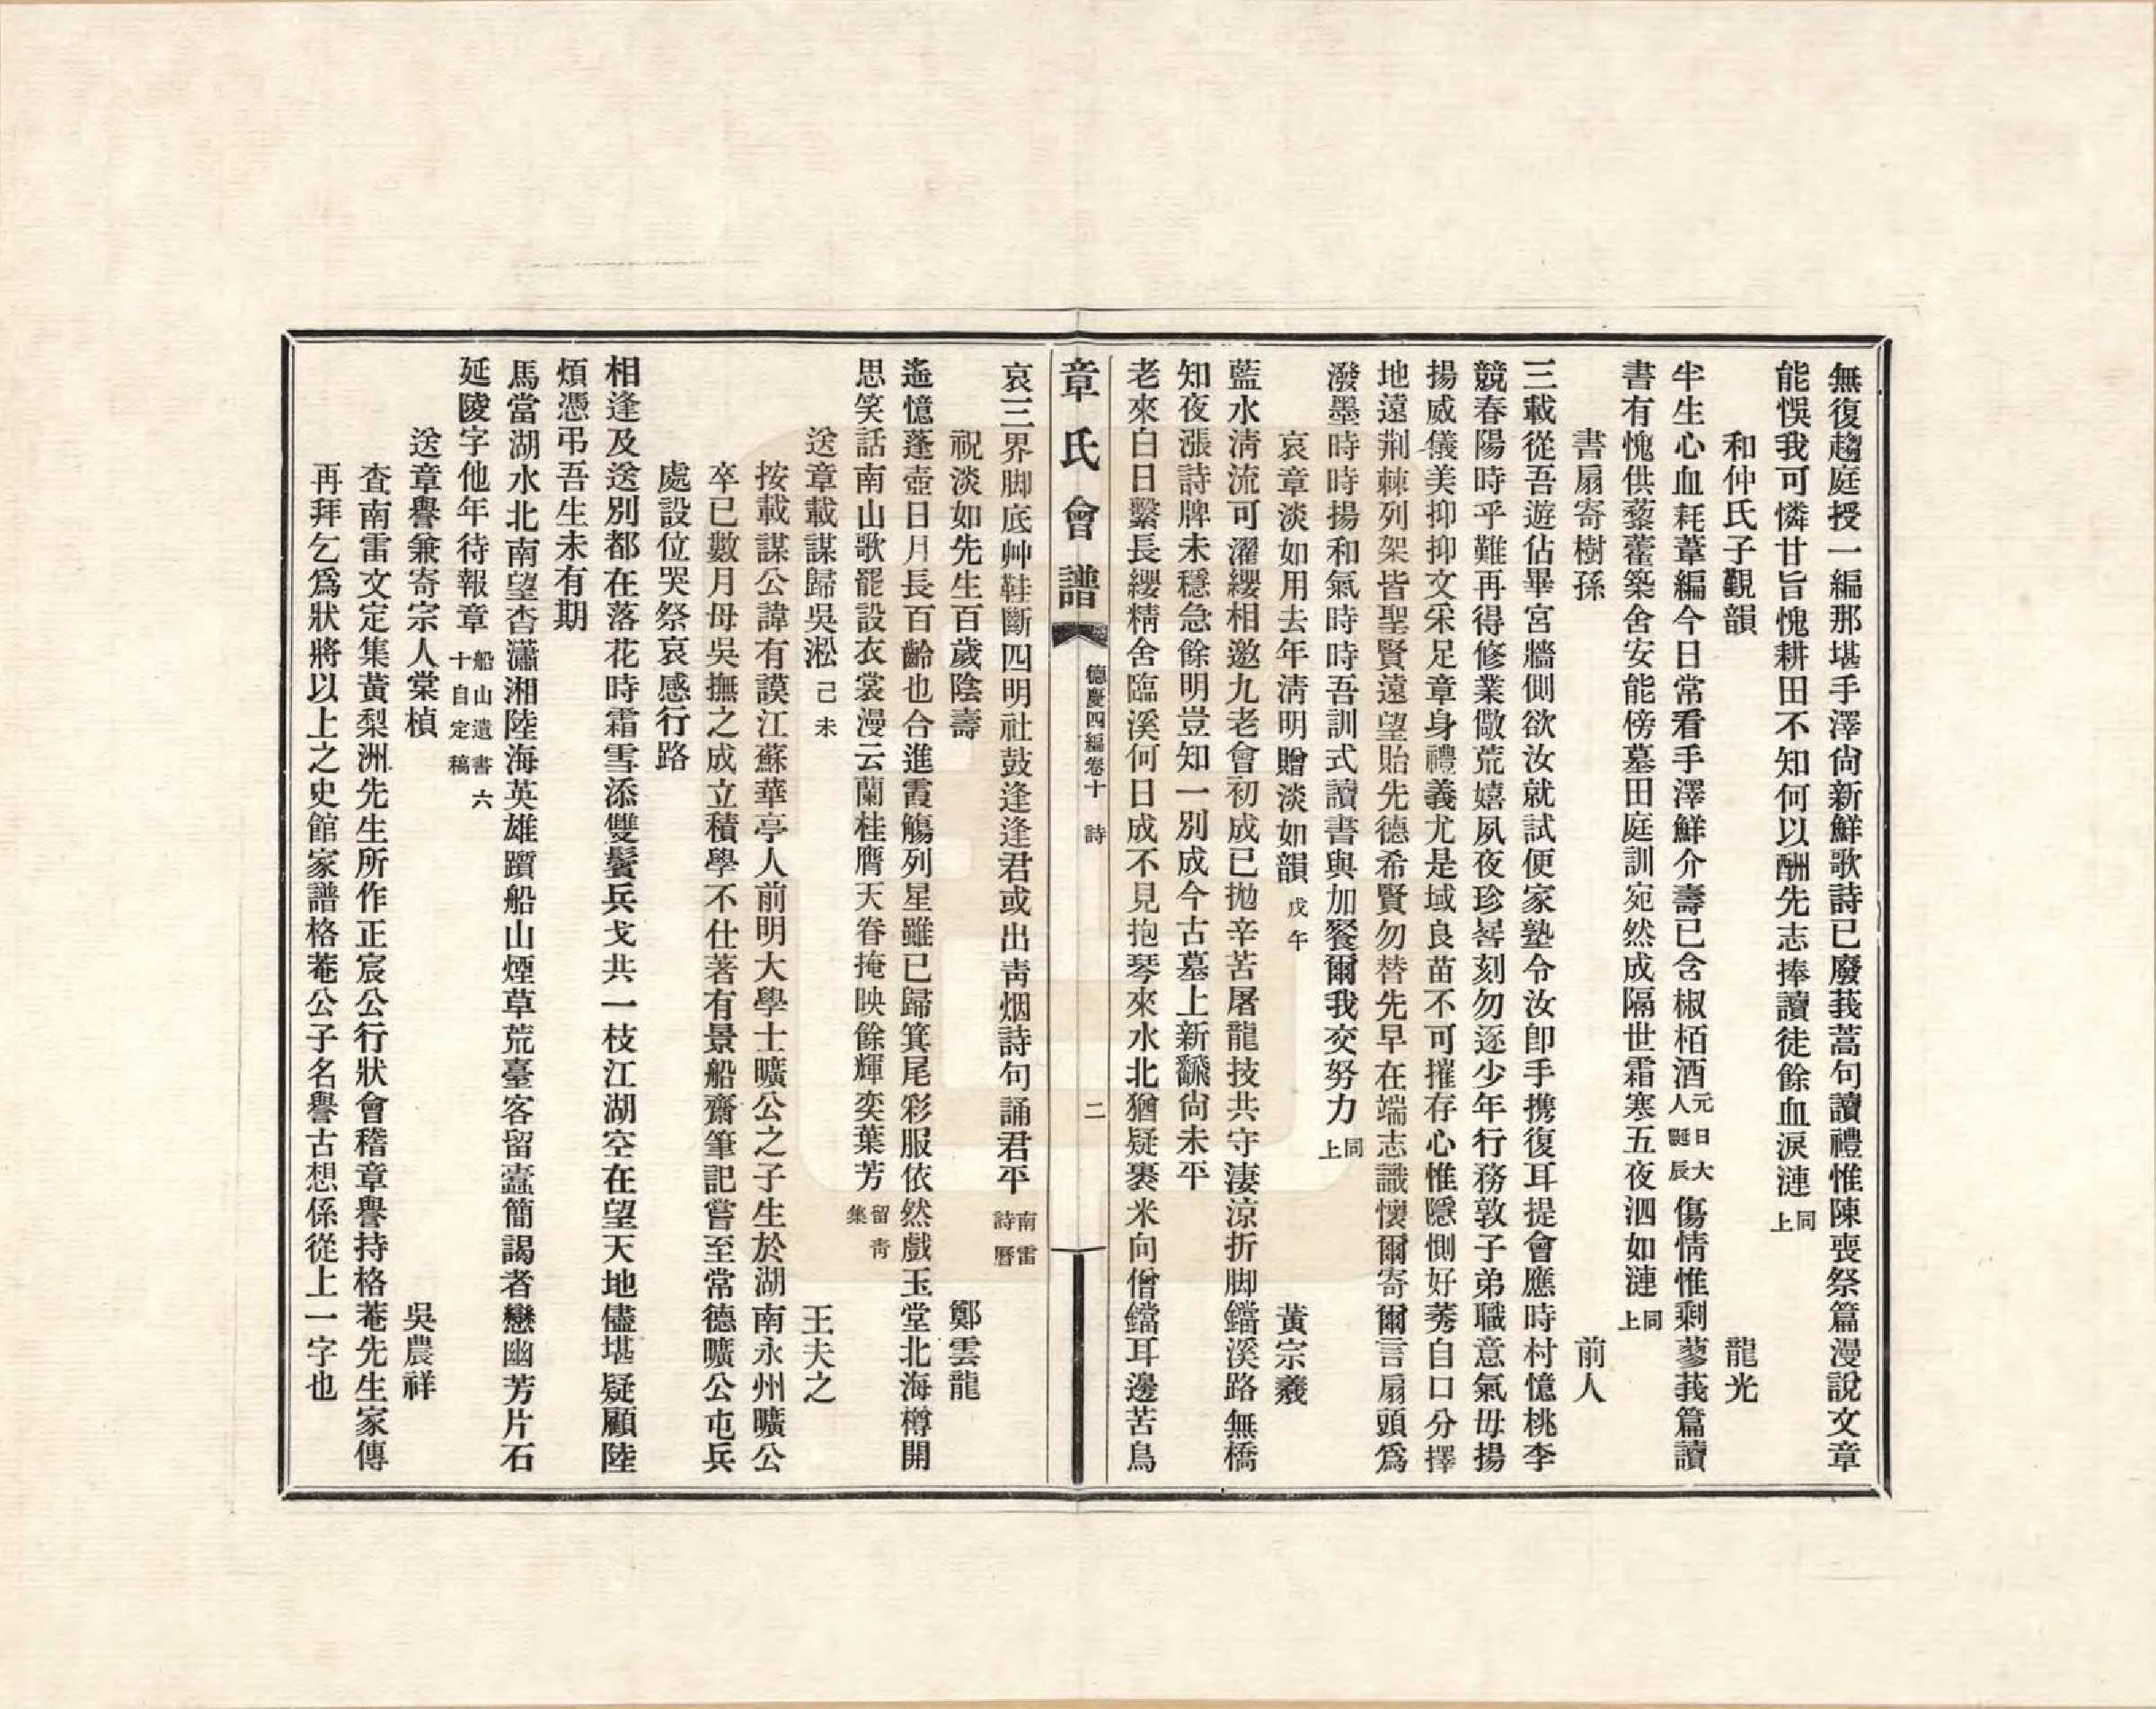 無復趨庭授一編那堪手澤尙新鮮歌詩已廢莪蒿句讀禮惟陳喪祭篇漫說文章
能悞我可憐甘旨愧耕田不知何以酬先志捧讀徒餘血淚漣同上
和仲氏子觀韻　龍光
半生心血耗葦編今日常看手澤鮮介壽已含椒栢酒元日大人誕辰傷情惟剩蓼莪篇讀
書有愧供藜藿築舍安能傍墓田庭訓宛然成隔世霜寒五夜泗如漣同上
書扇寄樹孫　前人
三載從吾遊佔畢宮牆側欲汝就試便家塾令汝卽手攜復耳提會應時村憶桃李
競春陽時乎難再得修業儆荒嬉夙夜珍晷刻勿逐少年行務敦子弟職意氣毋揚
揚威儀美抑抑文采足章身禮義尤是域良苗不可摧存心惟隱惻好莠自口分擇
地遠荆棘列架皆聖賢遠望貽先德希賢勿替先早在端志識懷爾寄爾言扇頭爲
潑墨時時揚和氣時時吾訓式讀書與加餐爾我交努力同上
哀章淡如用去年淸明贈淡如韻戊午　黃宗羲
藍水淸流可濯纓相邀九老會初成已拋辛苦屠龍技共守淒涼折脚鐺溪路無橋
知夜漲詩牌未穩急餘明豈知一別成今古墓上新飜尙未平
老來白日繫長纓精舍臨溪何日成不見抱琴來水北猶疑裹米向僧鐺耳邊苦鳥
章氏會譜　德慶四編卷十　詩　二
哀三界脚底艸鞋斷四明社鼓逢逢君或出靑烟詩句誦君平南雷詩曆
祝淡如先生百歲陰壽　鄭雲龍
遙憶蓬壺日月長百齡也合進霞觴列星雖已歸箕尾彩服依然戲玉堂北海樽開
思笑話南山歌罷設衣裳漫云蘭桂膺天眷掩映餘輝奕葉芳留靑集
送章載謀歸吳淞己未　王夫之
按載謀公諱有謨江蘇華亭人前明大學士曠公之子生於湖南永州曠公
卒已數月母吳撫之成立積學不仕著有景船齋筆記嘗至常德曠公屯兵
處設位哭祭哀感行路
相逢及送別都在落花時霜雪添雙鬢兵戈共一枝江湖空在望天地儘堪疑顧陸
煩憑弔吾生未有期
馬當湖水北南望杳瀟湘陸海英雄躓船山煙草荒臺客留蠹簡謁者戀幽芳片石
延陵字他年待報章船山遺書六十自定稿
送章譽兼寄宗人棠楨　吳農祥
查南雷文定集黃梨洲先生所作正宸公行狀會稽章譽持格菴先生家傳
再拜乞爲狀將以上之史館家譜格菴公子名譽古想係從上一字也